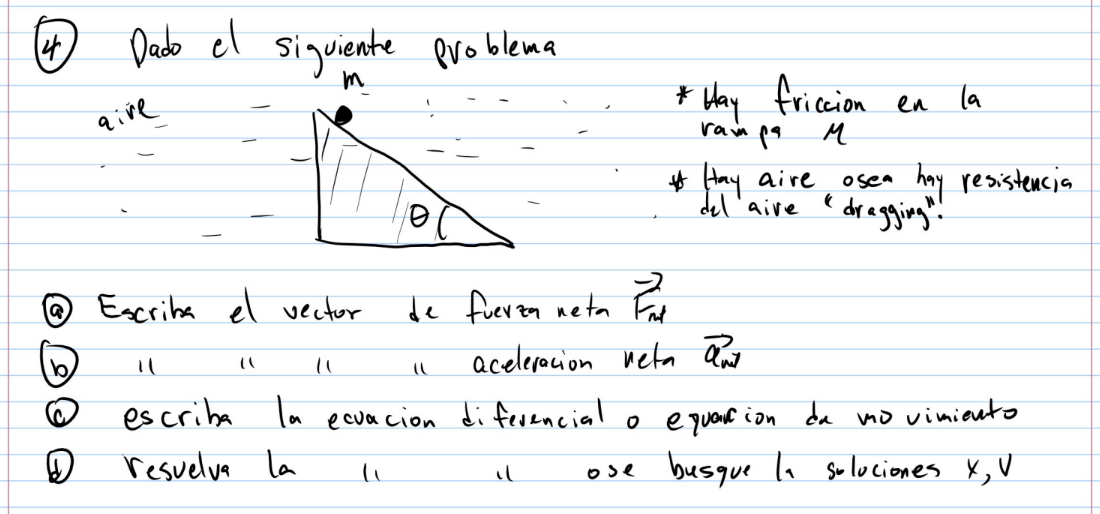 ④ Dado el siguiente problema
m
aire
* Hay friccion en la
rampa M
* Hay aire osea hay resistencia
del aire "dragging".
θ
ⓐ Escriba el vector de fuerza neta F⃗net
ⓑ " " " " aceleracion neta a⃗net
ⓒ escriba la ecuacion diferencial o equacion de movimiento
ⓓ resuelva la " " ose busque la soluciones x, v